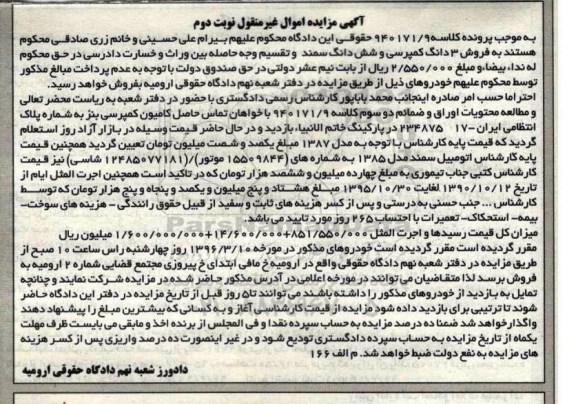 آگهی مزایده اموال غیرمنقول نوبت دوم
به موجب پرونده کلاسه ۹۴۰۱۷۱/۹ حقوقی این دادگاه محکوم علیهم بیرام علی حسینی و خانم زری صادقی محکوم
هستند به فروش ۳ دانگ کمپرسی و شش دانگ سمند و تقسیم وجه حاصله بین وراث و خسارت دادرسی در حق محکوم
له ندا، بیضاء و مبلغ ۲/۵۵۰/۰۰۰ ریال از بابت نیم عشر دولتی در حق صندوق دولت با توجه به عدم پرداخت مبالغ مذکور
توسط محکوم علیهم خودروهای ذیل از طریق مزایده در دفتر شعبه نهم دادگاه حقوقی ارومیه بفروش خواهد رسید.
احتراما حسب امر صادره اینجانب محمد باباپور کارشناس رسمی دادگستری با حضور در دفتر شعبه به ریاست محضر تعالی
و مطالعه محتویات اوراق و ضمائم دو سوم کلاسه ۹۴۰۱۷۱/۹ با خواهان تماس حاصل کامیون کمپرسی بنز به شماره پلاک
انتظامی ایران -۱۷ ۲۳۴۸۷۵ در پارکینگ خاتم الانبیا، بازدید و در حال حاضر قیمت وسیله در بازار آزاد روز استعلام
گردید که قیمت پایه کارشناس با توجه به مدل ۱۳۸۷ مبلغ یکصد و شصت میلیون تومان تعیین گردید همچنین قیمت
پایه کارشناس اتومبیل سمند مدل ۱۳۸۵ به شماره های (۱۵۵۰۹۸۴۴ موتور)/(۱۲۴۸۵۰۷۷۱۸۱ شاسی) نیز قیمت
کارشناس کتبی جناب تیموری به مبلغ چهارده میلیون و ششصد هزار تومان که در تاکید است همچنین اجرت المثل ایام از
تاریخ ۱۳۹۰/۱۰/۱۲ لغایت ۱۳۹۵/۱۰/۳۰ مبلغ هشتاد و پنج میلیون و یکصد و پنجاه و پنج هزار تومان که توسط
کارشناس ... جنب حسنی به درستی و پس از کسر هزینه های ثابت و سفید از قبیل حقوق رانندگی - هزینه های سوخت-
بیمه- استحکاک- تعمیرات با احتساب ۲۶۵ روز مورد تایید می باشد
میزان کل قیمت رسیدها و اجرت المثل ۸۵۱/۵۵۰/۰۰۰+۱۴/۶۰۰/۰۰۰+۱/۶۰۰/۰۰۰/۰۰۰ میلیون ریال
مقرر گردیده است مقرر گردیده است خودروهای مذکور در مورخه ۱۳۹۶/۳/۱۰ روز چهارشنبه راس ساعت ۱۰ صبح از
طریق مزایده در دفتر شعبه نهم دادگاه حقوقی واقع در ارومیه خ مافی ابتدای خ پیروزی مجتمع قضایی شماره ۲ ارومیه به
فروش برسد لذا متقاضیان می توانند در مورخه اعلامی در آدرس مذکور حاضر شده در مزایده شرکت نمایند و چنانچه
تمایل به بازدید از خودروهای مذکور را داشته باشند می توانند تا۵ روز قبل از تاریخ مزایده در دفتر این دادگاه حاضر
شوند تا ترتیبی برای بازدید داده شود مزایده از قیمت کارشناسی آغاز و به کسانی که بیشترین مبلغ را پیشنهاد دهند
واگذار خواهد شد ضمنا ده درصد مزایده به حساب سپرده نقدا و فی المجلس از برنده اخذ و مابقی می بایست ظرف مهلت
یکماه از تاریخ مزایده به حساب سپرده دادگستری تودیع شود و در غیر اینصورت ده درصد واریزی پس از کسر هزینه
های مزایده به نفع دولت ضبط خواهد شد. م الف ۱۶۶
دادورز شعبه نهم دادگاه حقوقی ارومیه